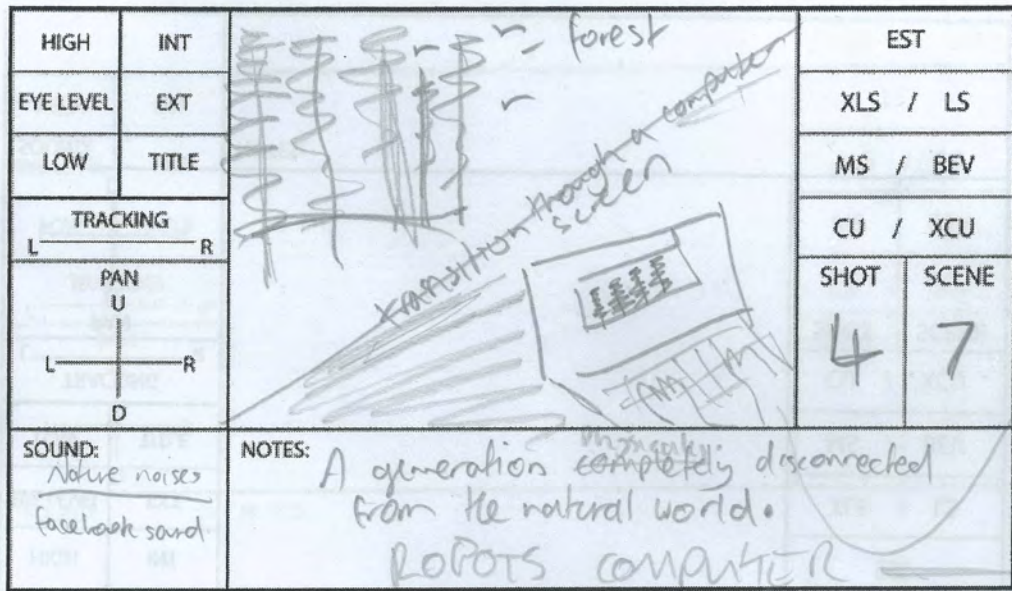 HIGH INT
EYE LEVEL EXT
LOW TITLE
TRACKING
L R
PAN
U
L R
D
forest
transition through a computer
screen
EST
XLS / LS
MS / BEV
CU / XCU
SHOT SCENE
4 7
SOUND:
Nature noises
facebook sound
NOTES:
A generation completely disconnected
from the natural world.
ROBOTS COMPUTER